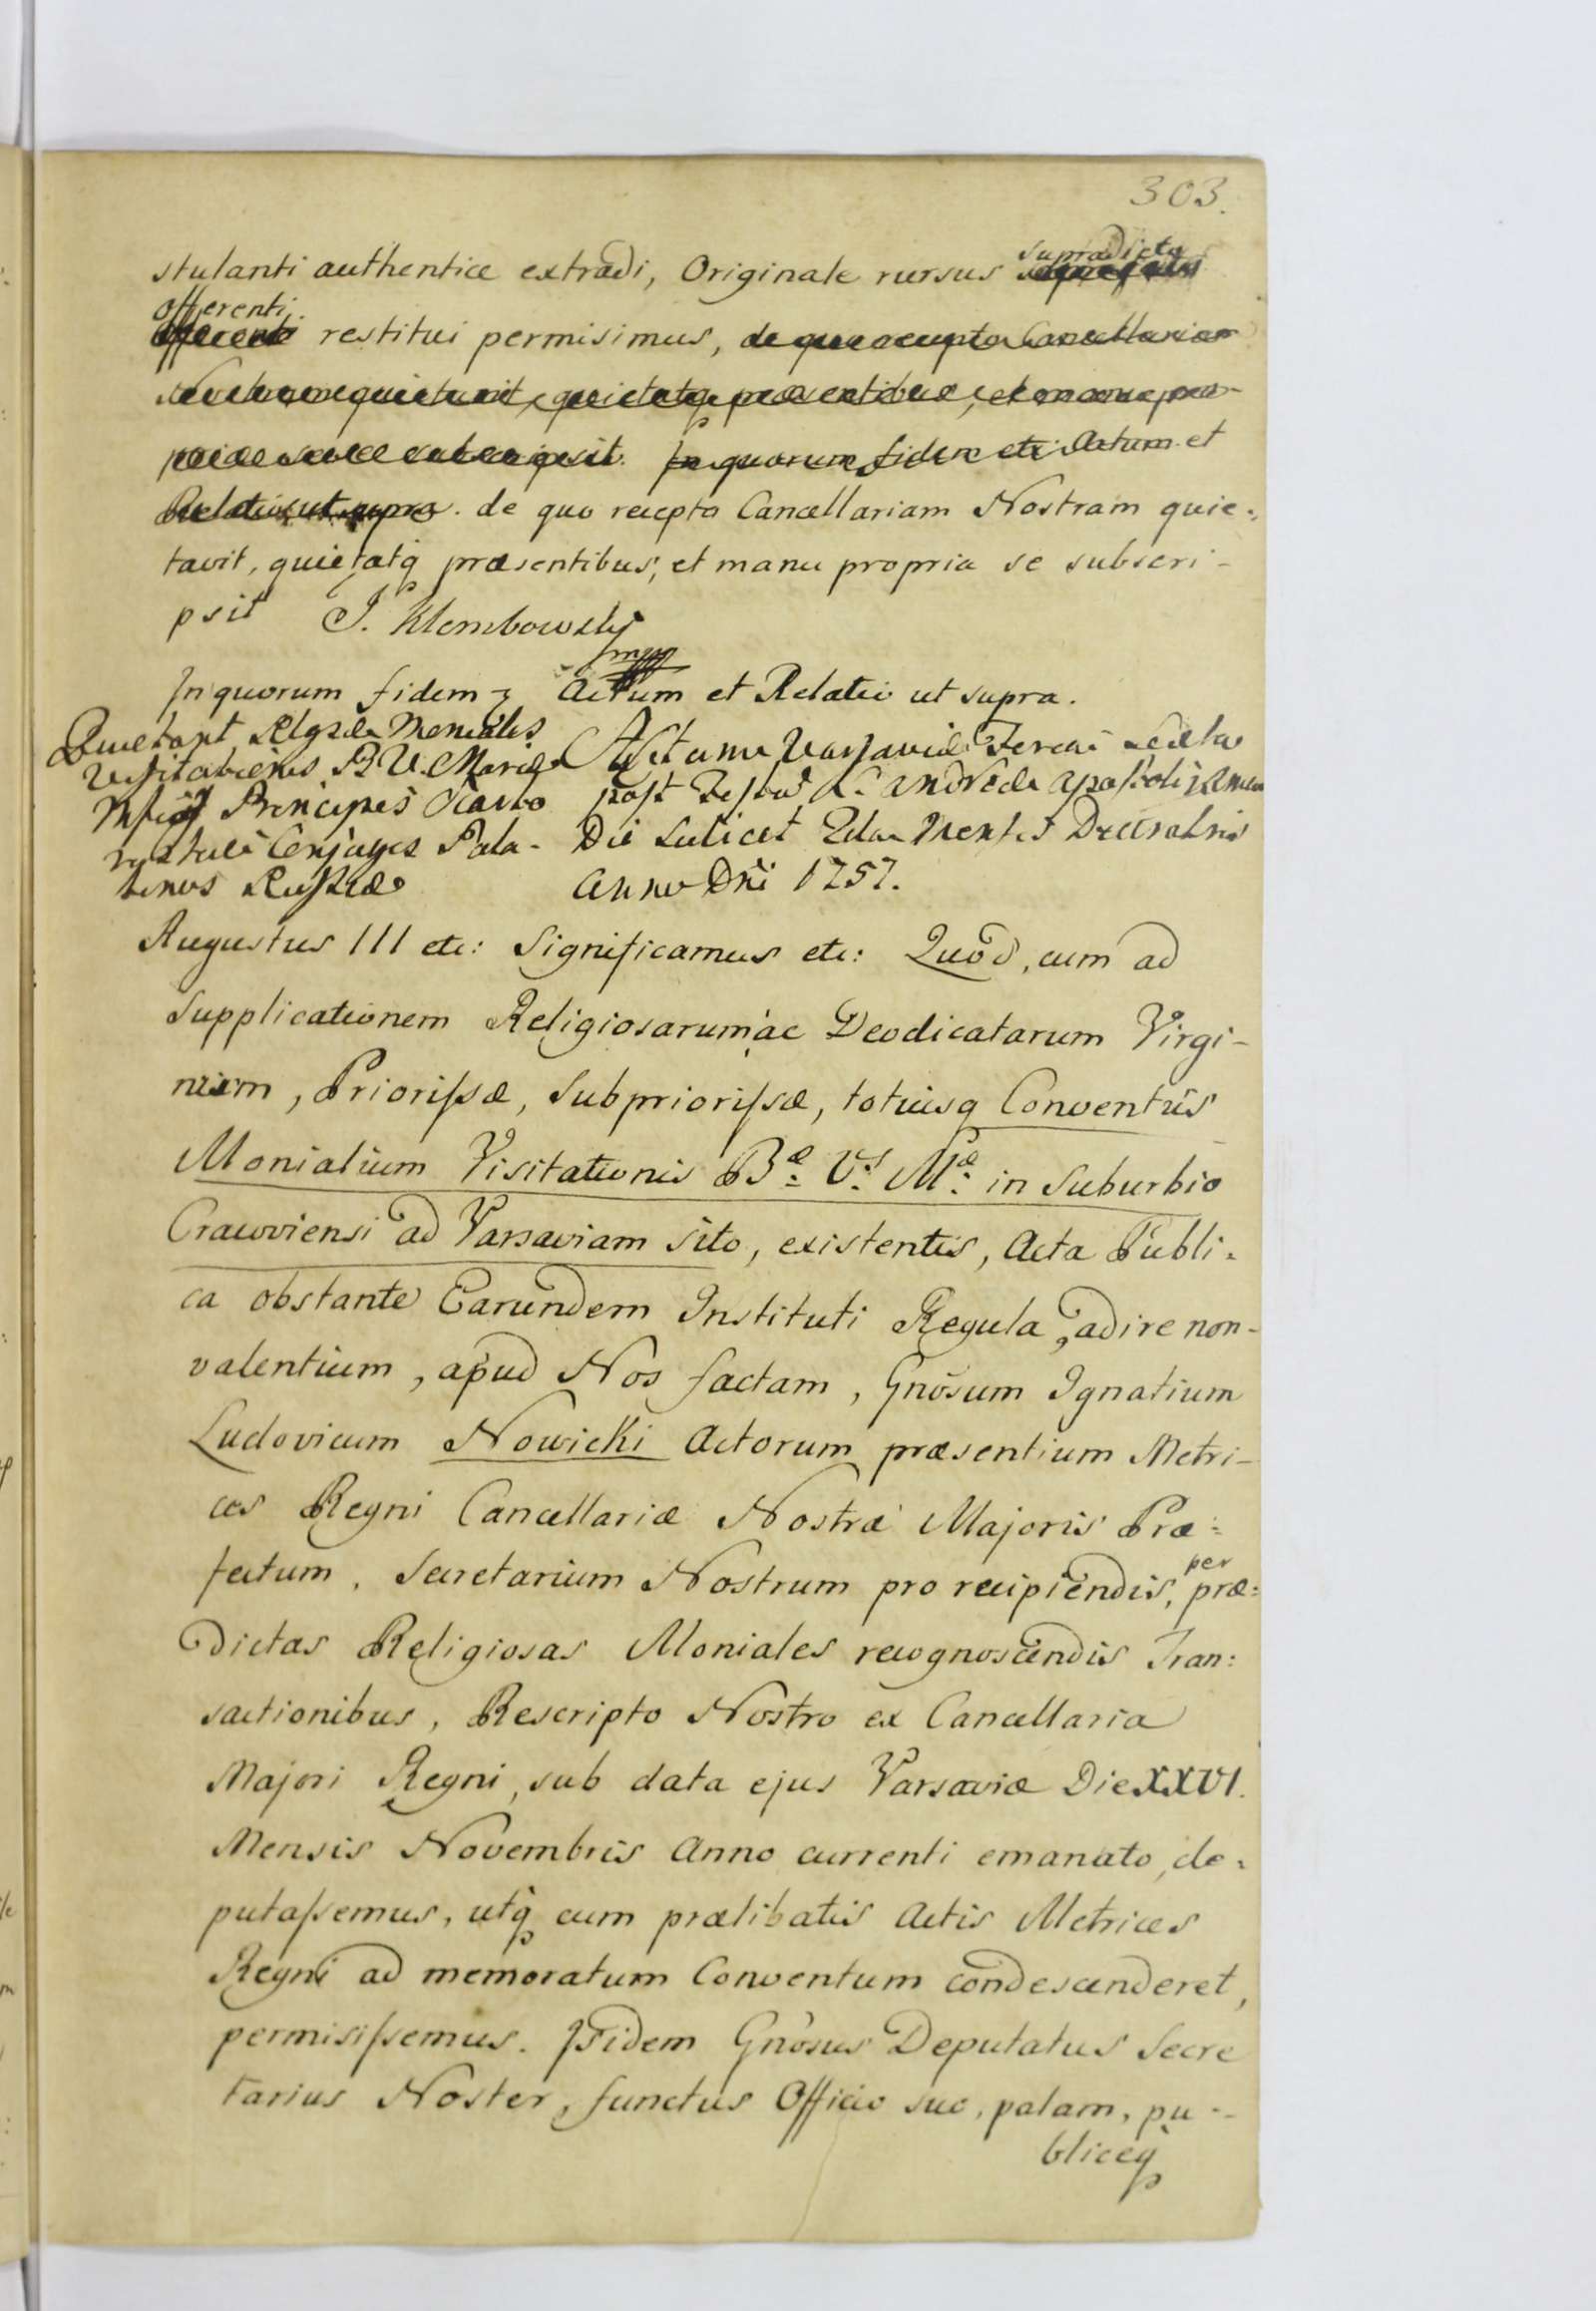 303.
stulanti authentice extradi, Originale rursus supradicto
offerenti restitui permisimus, de quo recepto Cancellariam
Nostram quietavit, quietatq præsentibus, et manu pro-
pria se subscripsit. In quorum fidem etc: Actum et
Relatio ut supra. de quo recepto Cancellariam Nostram quie-
tavit, quietatq præsentibus, et manu propria se subscri-
psit J. Klembowski
mpp
In quorum fidem Actum et Relatio ut supra.
Quietant Rlgsæ Moniales
Visitationis B V. Mariæ
Principes Czarto
ryskie Conjuges Pala-
tinos Russiæ
Actum Varsaviæ Feria sexta
post Festum S. Andreæ Apostoli
Die scilicet 2da Mensis Decembris
Anno Dni 1757.
Augustus III etc: Significamus etc: Quod, cum ad
Supplicationem Religiosarum ac Deodicatarum Virgi-
num, Prioriſsæ, Subprioriſsæ, totiusq Conventus
Monialium Visitationis Bæ: V:s Mæ: in Suburbio
Cracoviensi ad Varsaviam sito, existentis, Acta Publi-
ca obstante Earundem Instituti Regula, adire non-
valentium, apud Nos factam, Gnosum Ignatium
Ludovicum Nowicki Actorum præsentium Metri-
ces Regni Cancellariæ Nostræ Majoris Præ-
fectum, Secretarium Nostrum pro recipiendis, per præ-
dictas Religiosas Moniales recognoscendis Tran-
sactionibus, Rescripto Nostro ex Cancellaria
Majori Regni, sub data ejus Varsaviæ Die XXVI.
Mensis Novembris Anno currenti emanato, de-
putaſsemus, utq cum prælibatis Actis Metrices
Regni ad memoratum Conventum condescenderet,
permisiſsemus. Ibidem Gnosus Deputatus Secre
tarius Noster, functus Officio suo, palam, pu-
bliceq